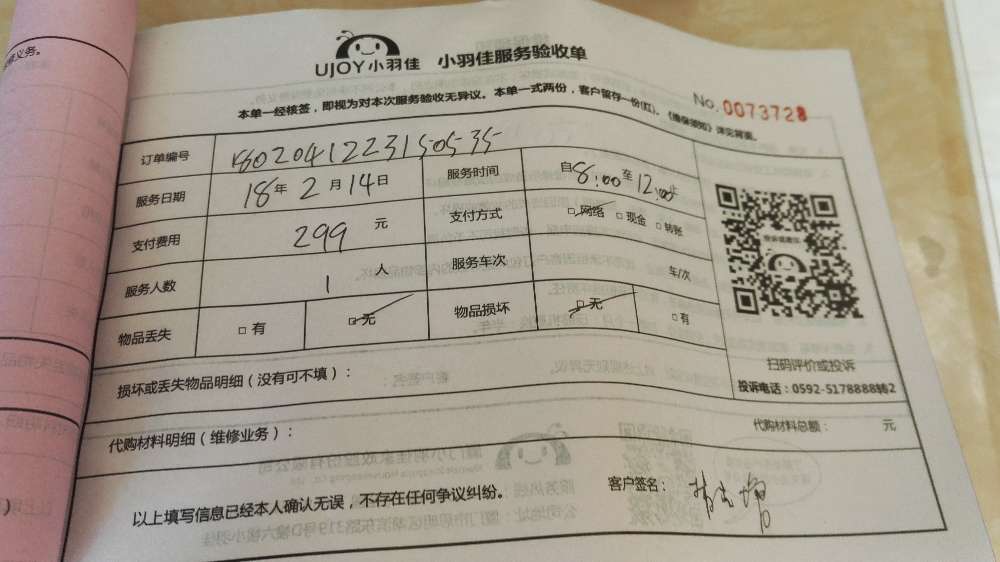 UJOY小羽佳 小羽佳服务验收单
No.0073728
本单一经核签，即视为对本次服务验收无异议。本单一式两份，客户留存一份(红)。《维保须知》详见背面。
订单编号 1802041223150535
服务日期 18年2月14日 服务时间 自8:00至12:00止
支付费用 299元 支付方式 □网络 □现金 □转账
服务人数 1人 服务车次 车/次
物品丢失 □有 □无 物品损坏 □无 □有
扫码评价或投诉
投诉电话：0592-5178888转2
损坏或丢失物品明细（没有可不填）：
代购材料明细（维修业务）： 代购材料总额： 元
以上填写信息已经本人确认无误，不存在任何争议纠纷。 客户签名：